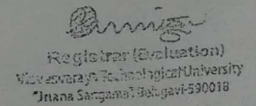 Registrar (Evaluation)
Visvesvaraya Technological University
"Jnana Sangama" Belagavi-590018